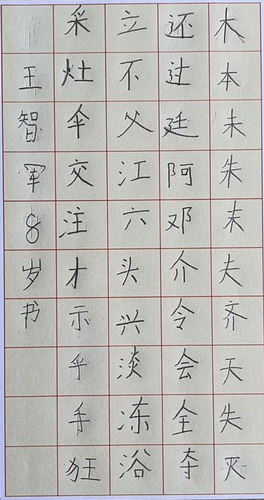 木本未朱末夫齐天失灭
还过廷阿邓介令会全夺
立不父江六头兴淡冻浴
采灶伞交注才示乎手狂
王智军8岁书